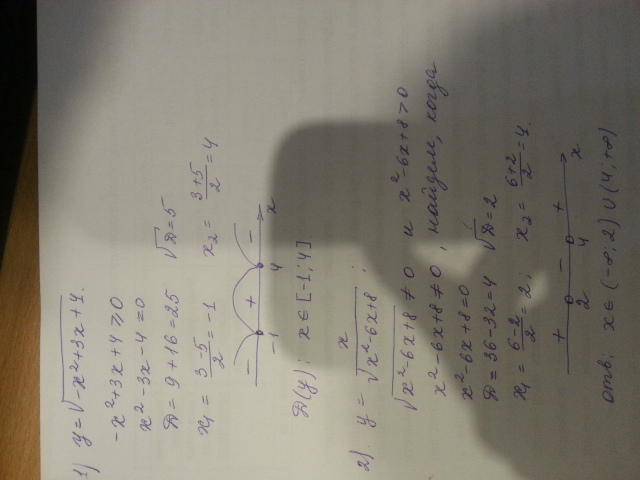 1) y = √(-x²+3x+4.
-x²+3x+4 ≥ 0
x²-3x-4=0
D = 9+16=25 √D=5
x₁ = (3-5)/2 = -1 x₂ = (3+5)/2 = 4
- + - x
-1 4
D(y): x ∈ [-1; 4]
2) y = x/√(x²-6x+8) ;
√(x²-6x+8) ≠ 0 и x²-6x+8 > 0
x²-6x+8 ≠ 0, найдем, когда
x²-6x+8=0
D = 36-32=4 √D=2
x₁ = (6-2)/2 = 2; x₂ = (6+2)/2 = 4.
+ - + x
2 4
отв: x ∈ (-∞; 2) ∪ (4; +∞)